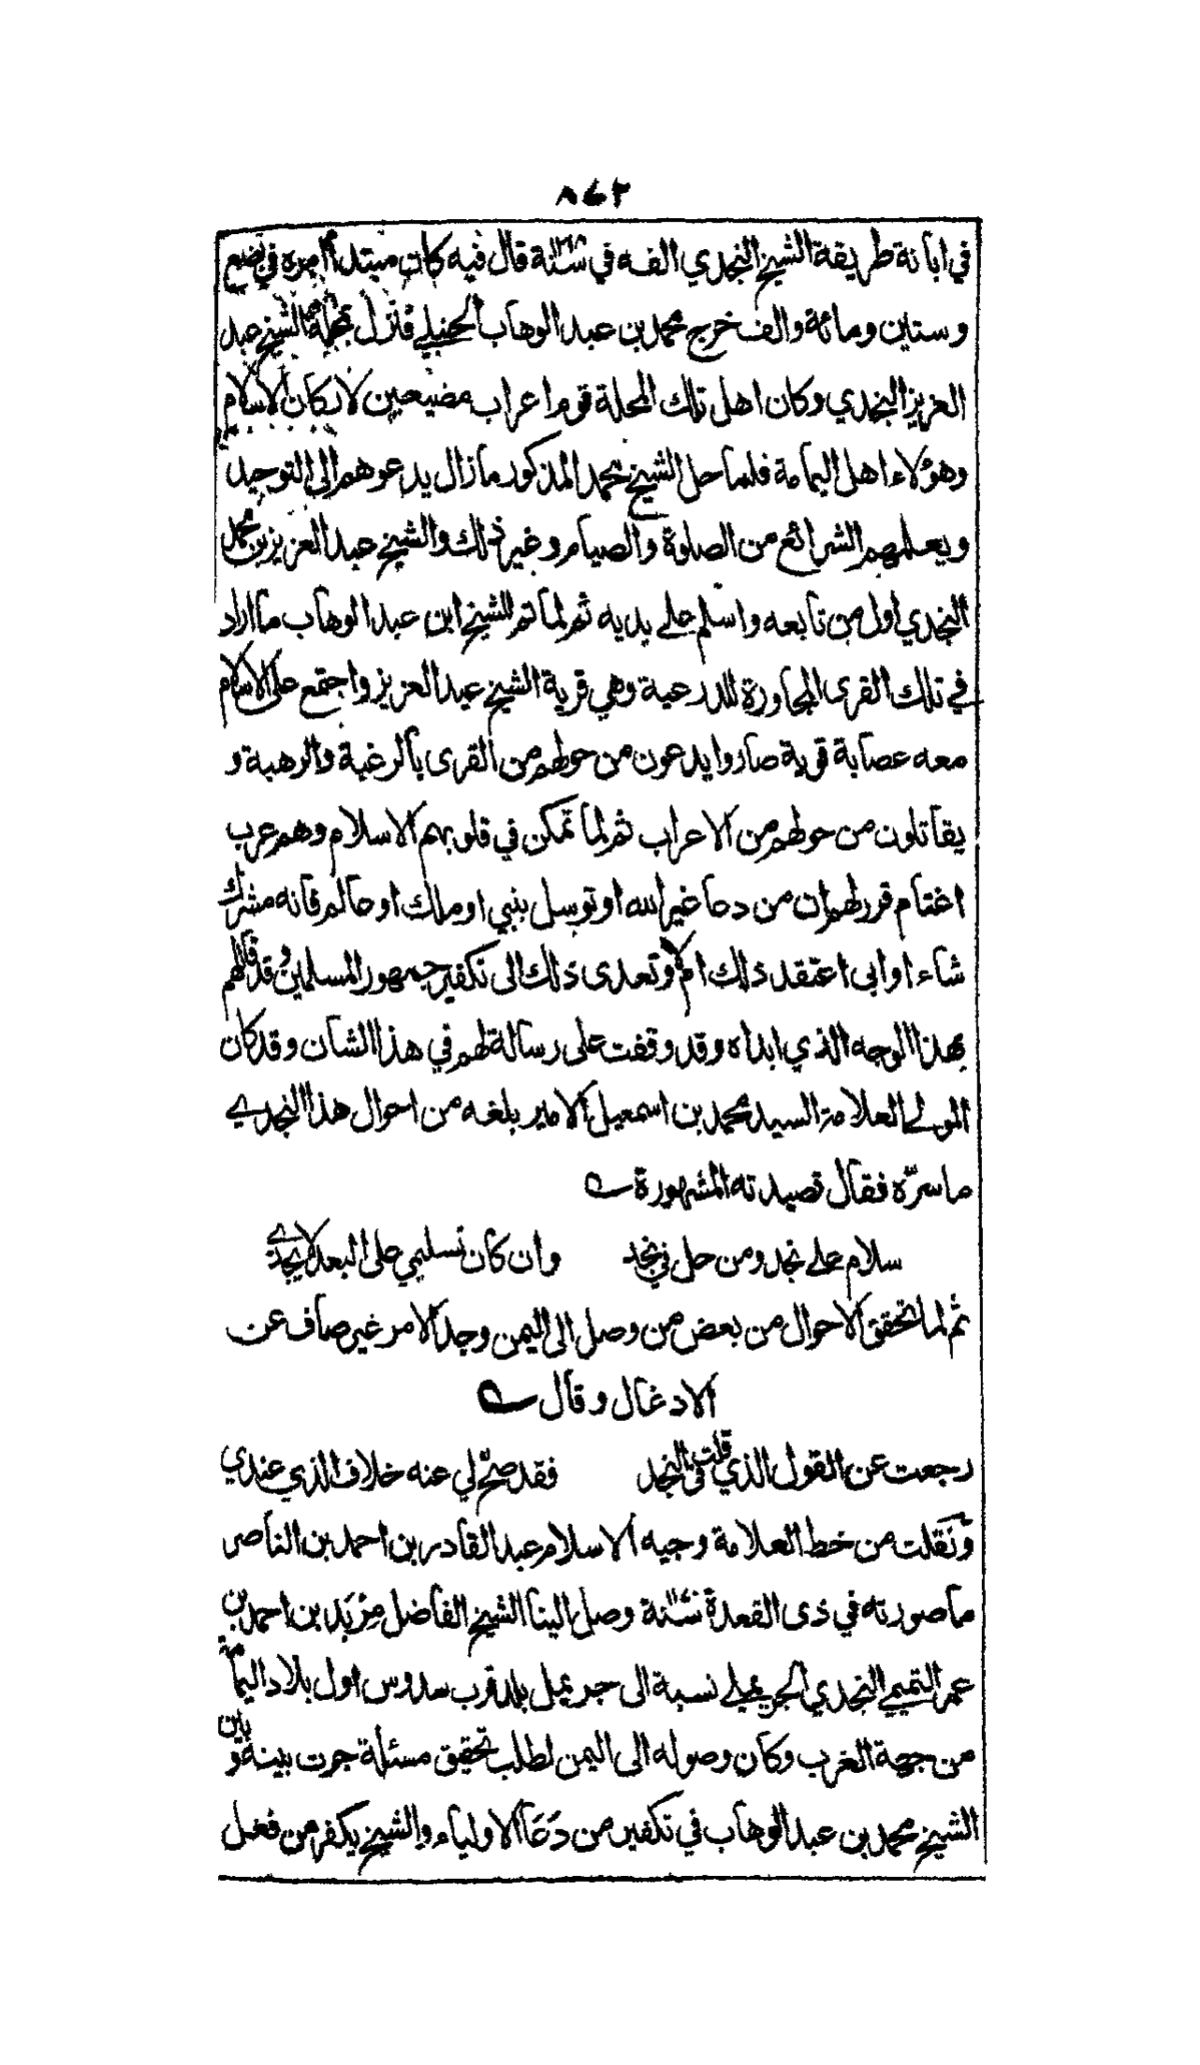 ٨٦٢
في ابانة طريقة الشيخ النجدي الفه في سنة قال فيه كان مبتدأ امره في بضع
وستين ومائة والف خرج محمد بن عبد الوهاب الحنبلي فنزل بمحلة الشيخ عبد
العزيز النجدي وكان اهل تلك المحلة قوم اعراب مضيعين لاركان الاسلام
وهؤلاء اهل اليمامة فلما حل الشيخ محمد المذكور ما زال يدعوهم الى التوحيد
ويعلمهم الشرائع من الصلوة والصيام وغير ذلك والشيخ عبد العزيز بن محمد
النجدي اول من تابعه واسلم على يديه ثم لما تم للشيخ ابن عبد الوهاب ما اراد
في تلك القرى المجاورة للدرعية وهي قرية الشيخ عبد العزيز واجتمع على الاسلام
معه عصابة قوية صاروا يدعون من حولهم من القرى بالرغبة والرهبة و
يقاتلون من حولهم من الاعراب ثم لما تمكن في قلوبهم الاسلام وهم عرب
اغتام قرر لهم ان من دعا غير الله او توسل بنبي او ملك او عالم فانه مشرك
شاء او ابى اعتقد ذلك ام لا وتعدى ذلك الى تكفير جمهور المسلمين وقد قاتلهم
بهذا الوجه الذي ابداه وقد وقفت على رسالة لهم في هذا الشان وقد كان
المولى العلامة السيد محمد بن اسمعيل الامير بلغه من احوال هذا النجدي
ما سرّه فقال قصيدته المشهورة
سلام على نجد ومن حل في نجد وان كان تسليمي على البعد لا يجدي
ثم لما تحقق الاحوال من بعض من وصل الى اليمن وجد الامر غير صاف عن
الادغال وقال
رجعت عن القول الذي قلت في النجد فقد صحّ لي عنه خلاف الذي عندي
ونقلت من خط العلامة وجيه الاسلام عبد القادر بن احمد بن الناصر
ما صورته في ذى القعدة سنة وصل الينا الشيخ الفاضل مِرْبَد بن احمد بن
عمر التميمي النجدي الحريملي نسبة الى حريمل بلد قرب سدوس اول بلاد اليمامة
من جهة الغرب وكان وصوله الى اليمن لطلب تحقيق مسئلة جرت بينه وبين
الشيخ محمد بن عبد الوهاب في تكفير من دَعَا الاولياء والشيخ يكفر من فعل